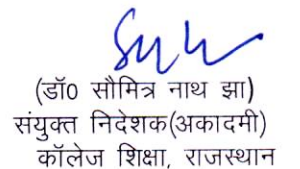 (डॉ0 सौमित्र नाथ झा)
संयुक्त निदेशक(अकादमी)
कॉलेज शिक्षा, राजस्थान